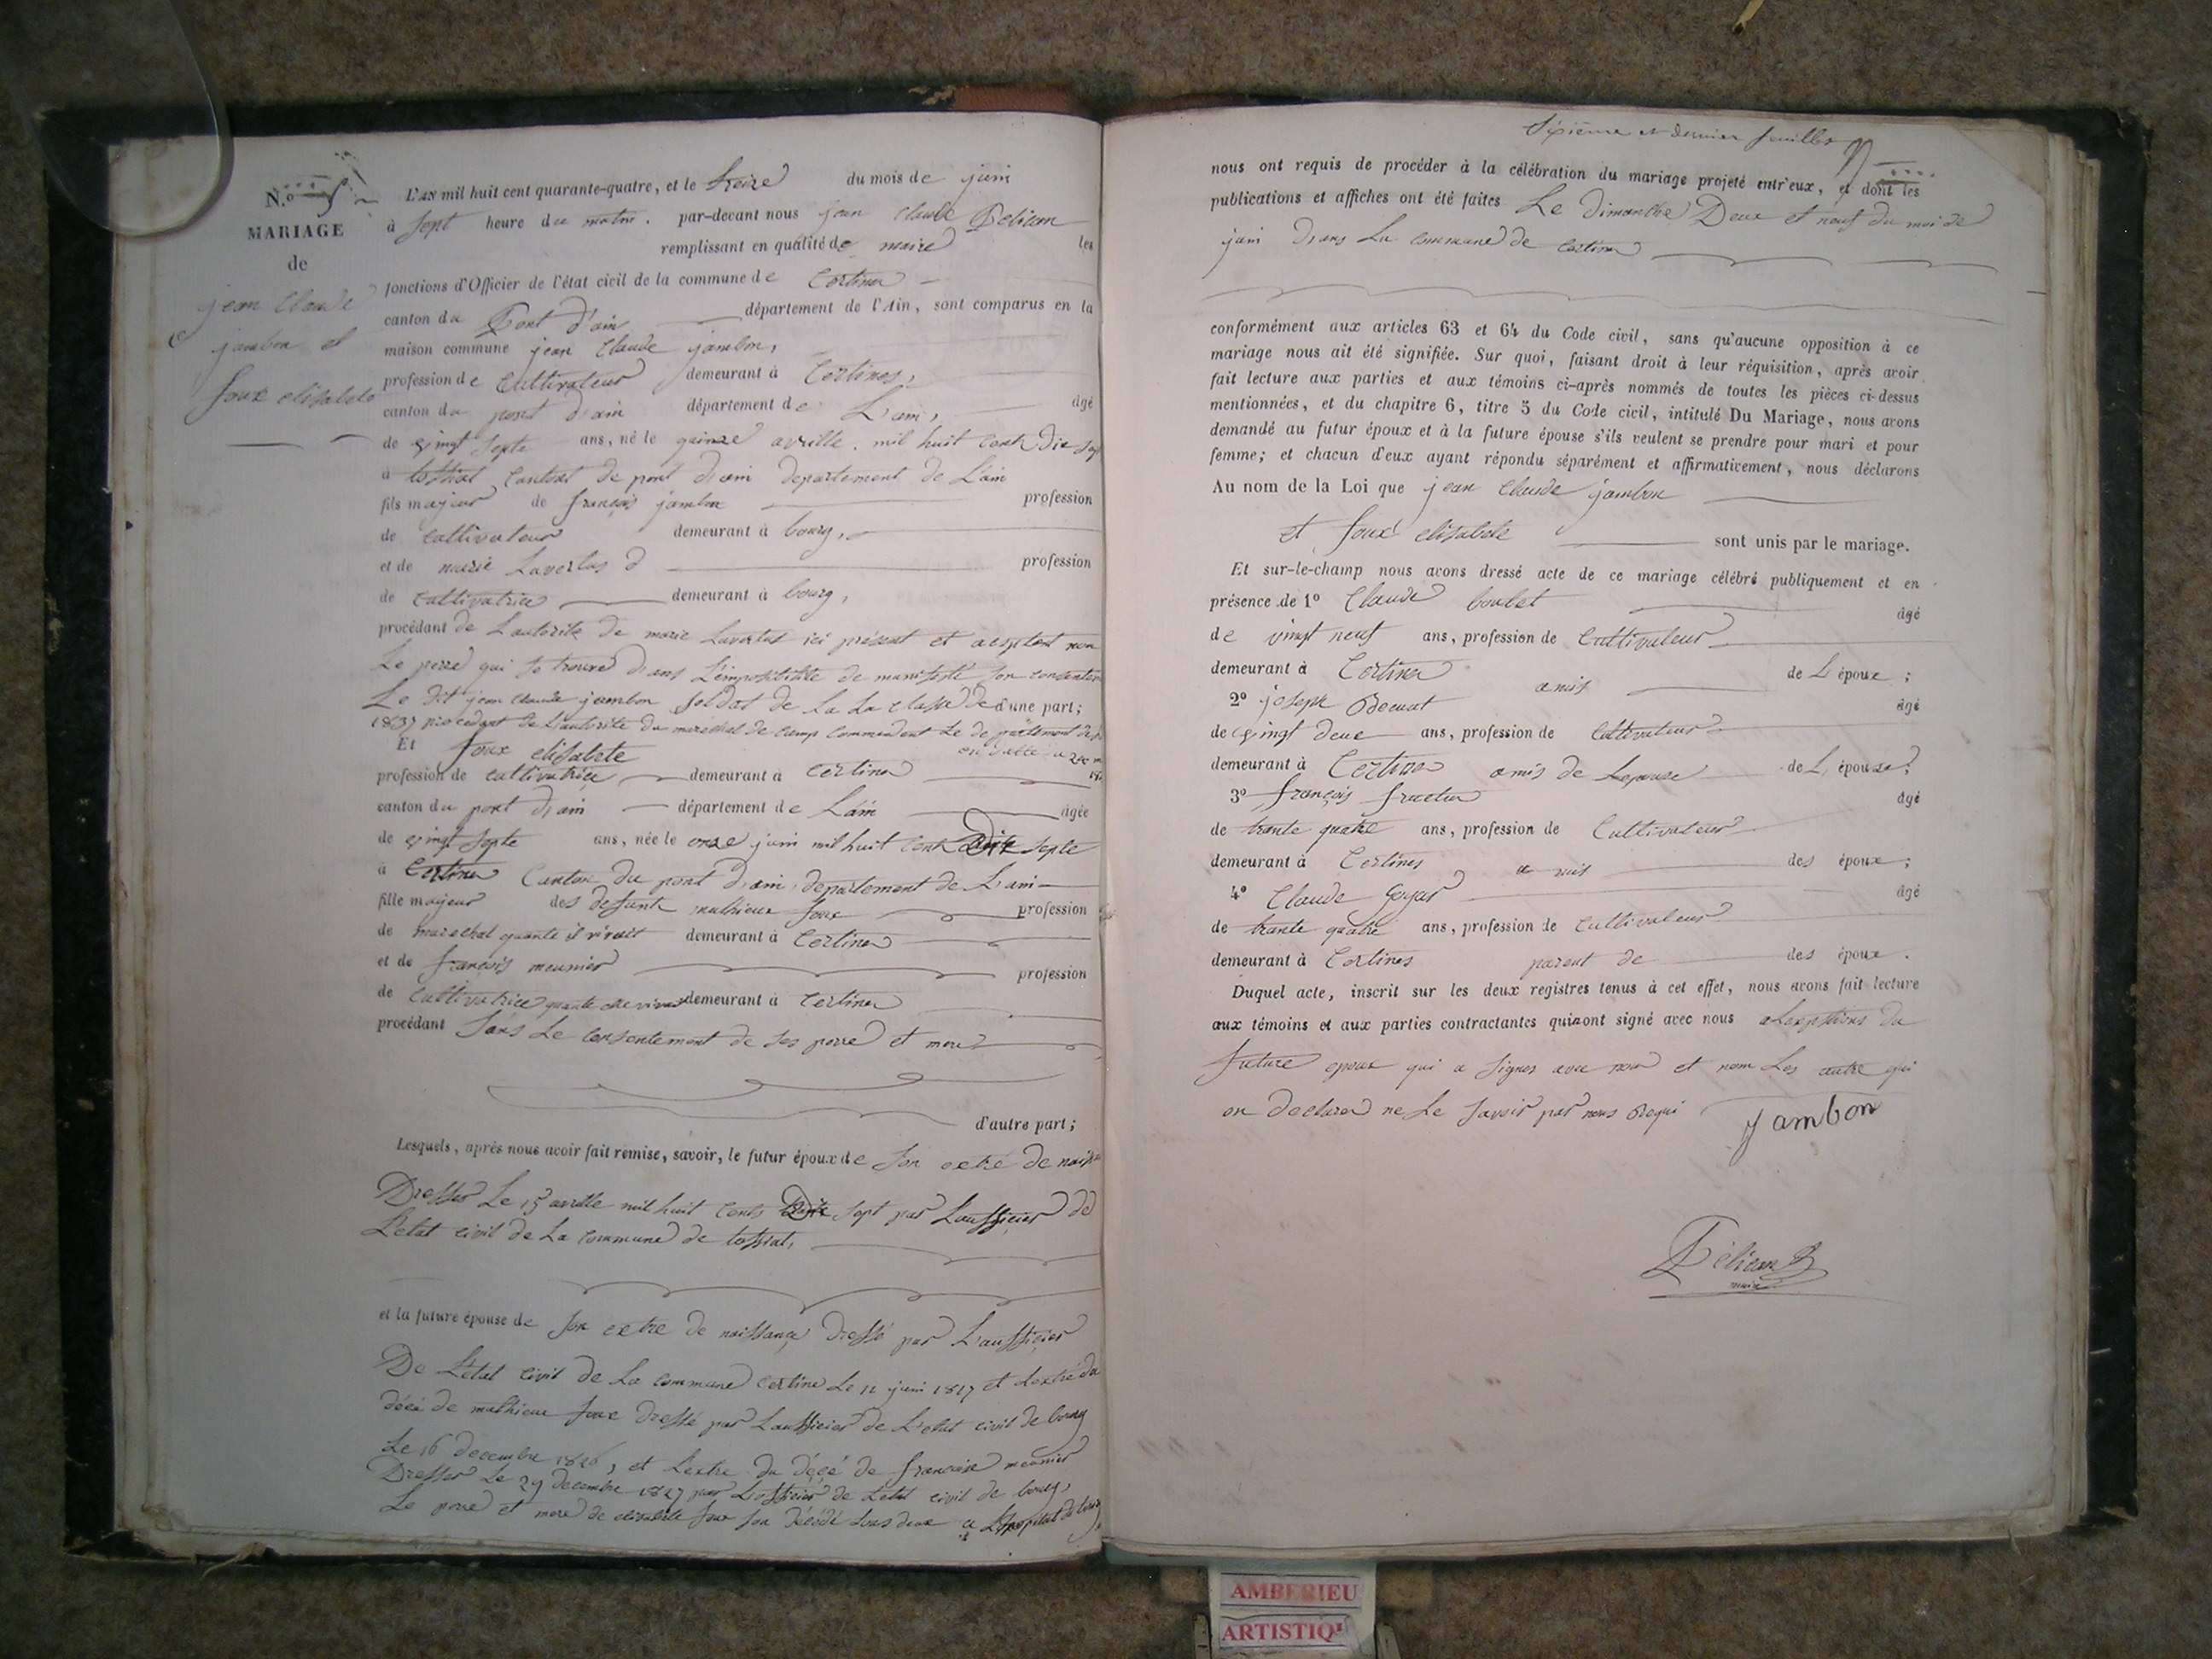 N.º 5
MARIAGE
de
jean Claude
jambon et
foux elisabete
L'AN mil huit cent quarante-quatre, et le treize du mois de juin
à sept heure du matin. par-devant nous jean claude Pelican
remplissant en qualité de maire les
fonctions d'Officier de l'état civil de la commune de Certines
canton du Pont d'ain département de l'Ain, sont comparus en la
maison commune jean Claude jambon,
profession de Cultivateur demeurant à Certines,
canton du pont d'ain département de L'ain, âgé
de vingt septe ans, né le quinze avrille. mil huit cent Die sept
à tossiat Cantont de pont d'ain departement de L'ain
fils majeur de françois jambon profession
de Cultivateur demeurant à bourg,
et de marie Lavertus d profession
de Cultivatrice demeurant à bourg,
procédant de L'autorite de marie Lavertus ici présent et acseptent non
Le perre qui se trouve dans L'impossibilite de manifesté son consentem
Le dit jean claude jambon soldat de la La classe de d'une part;
1837 procedant de L'autorite du marechal de camp commendent Le departement de
Et foux elisabete
profession de cultivatrice demeurant à Certines
canton du pont d'ain département de L'ain âgée
de vingt septe ans, née le onze juin mil huit Cent Dix septe
à Certines Canton du pont d'ain, departement de L'ain
fille majeur des defunt mathieux foux profession
de marechal quante il vivait demeurant à Certines
et de françois meunier profession
de Cultivatrice quante elle vivait demeurant à Certines
procédant sans Le consentement de ses perre et mere
d'autre part;
Lesquels, après nous avoir fait remise, savoir, le futur époux de son extré de naiss
Dresser Le 15 avrille mil huit Cents Dix sept par Laufficier de
L'etat civil de La commune de tossiat,
et la future épouse de son extré de naissançe dressé par L'aufficier
De L'etat civil de La commune Certine Le 12 juin 1817 et L'extré du
décé de mathieux foux dressé par Laufficier de L'etat civil de bourg
Le 16 decembre 1826, et Lextre du décé de francoise meunier
Dresser Le 29 decembre 1827 par L'officier de Letat civil de bourg,
Le perre et mere de elisabete foux son décédé tous deux a L'hopital de bourg
Sixième et dernier feuilles
nous ont requis de procéder à la célébration du mariage projeté entr'eux, et dont les
publications et affiches ont été faites Le dimanche Deux et neuf du moi de
juin dans La commune de Certines
conformément aux articles 63 et 64 du Code civil, sans qu'aucune opposition à ce
mariage nous ait été signifiée. Sur quoi, faisant droit à leur réquisition, après avoir
fait lecture aux parties et aux témoins ci-après nommés de toutes les pièces ci-dessus
mentionnées, et du chapitre 6, titre 5 du Code civil, intitulé Du Mariage, nous avons
demandé au futur époux et à la future épouse s'ils veulent se prendre pour mari et pour
femme; et chacun d'eux ayant répondu séparément et affirmativement, nous déclarons
Au nom de la Loi que jean Claude jambon
et foux elisabete sont unis par le mariage.
Et sur-le-champ nous avons dressé acte de ce mariage célébré publiquement et en
présence de 1º Claude boulet âgé
de vingt neuf ans, profession de Cultivateur
demeurant à Certines amis de L'époux;
2º joseph Bocuat âgé
de vingt deux ans, profession de Cultivateur
demeurant à Certines amis de Lepouse de L'épouse;
3º françois âgé
de trante quatre ans, profession de Cultivateur
demeurant à Certines amis des époux;
4º Claude Goyar âgé
de trante quatre ans, profession de Cultivateur
demeurant à Certines parent de des époux.
Duquel acte, inscrit sur les deux registres tenus à cet effet, nous avons fait lecture
aux témoins et aux parties contractantes qui ont signé avec nous alexeptions du
future epoux qui a signer avec nous et nom Les autre qui
on declarer ne Le savoir par nous Requi
jambon
Pélican
maire
AMBERIEU
ARTISTIQ